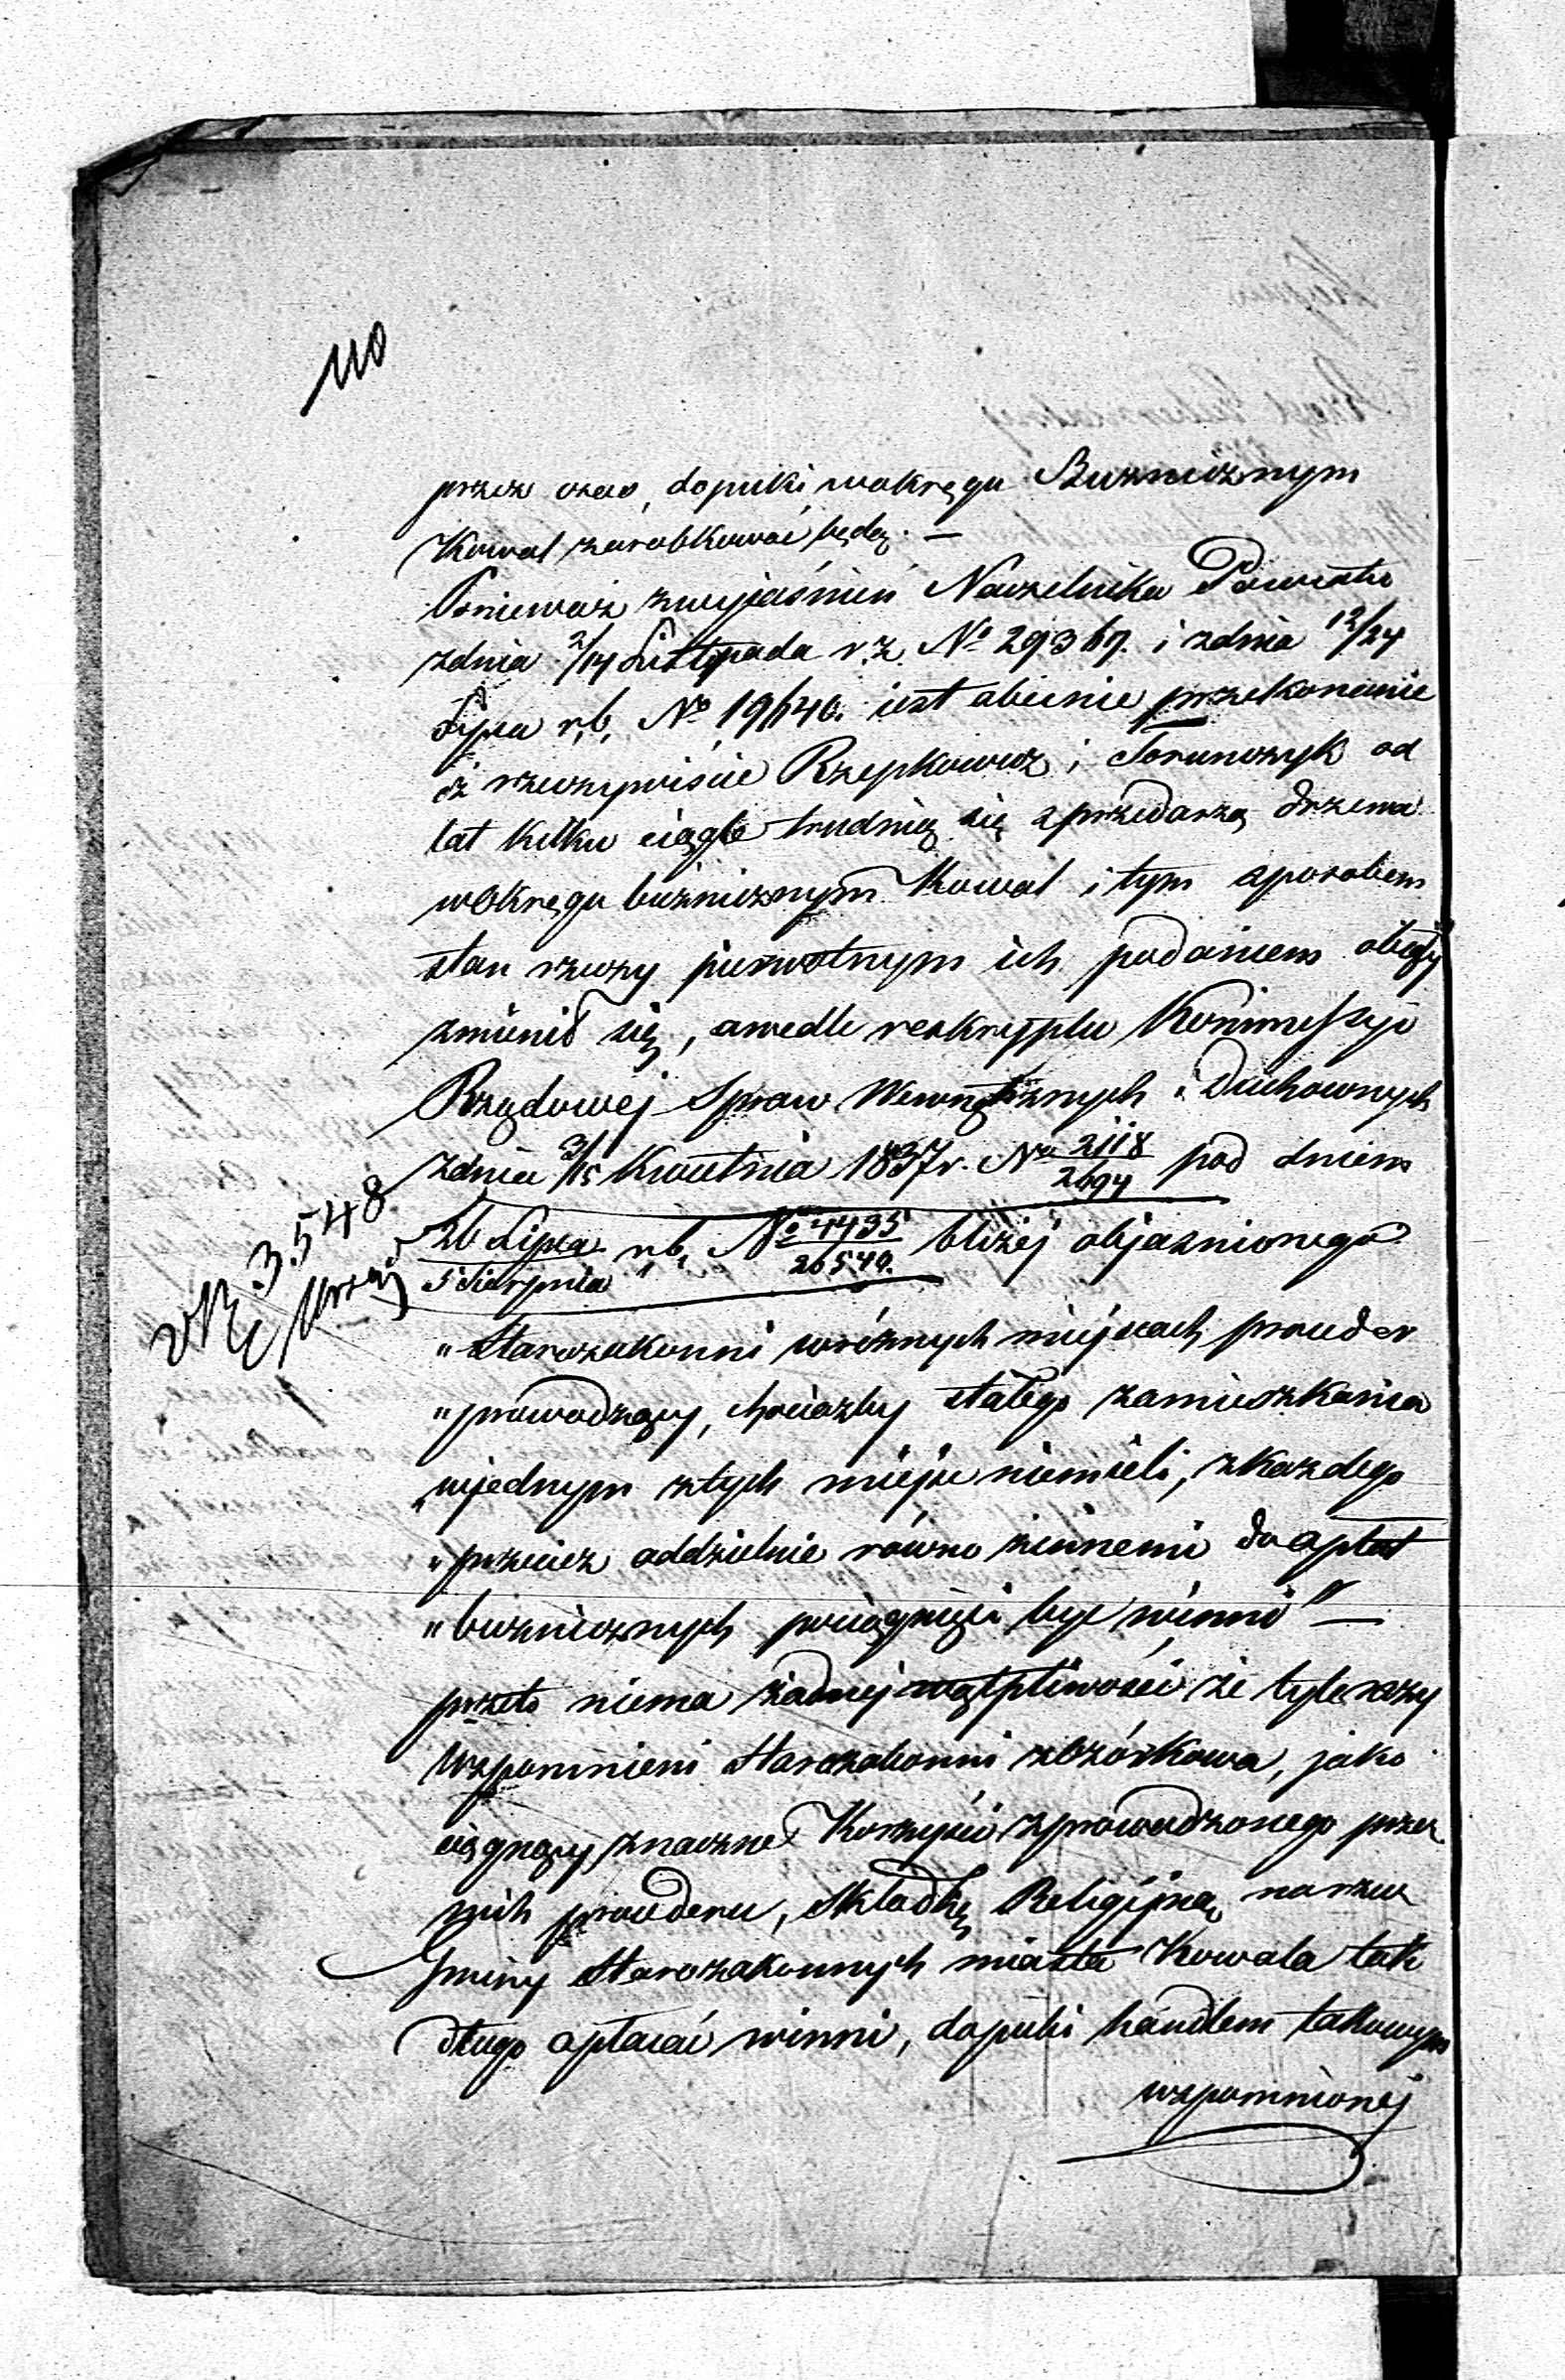 110
przez czas, dopuki wokręgu Bużnicznym
Kowal zarobkować będą. —
Ponieważ zwyjaśnień Naczelnika Powiatu
zdnia 2/14 Listopada r.z. No 29369. i zdnia 12/24
Lipca r,b, No 19640. iest obecnie przekonanie
iż rzeczywiście Rzepkowicz i Torunczyk od
lat kilku ciągle trudnią się zprzedarzą drzewa
wokręgu bużnicznym Kowal i tym sposobem
stan rzeczy pierwotnym ich podaniem objęty
zmienił się, awedle reskryptu Kommissyi
Rządowej Spraw Wewnętrznych i Duchownych
zdnia 3/15 Kwietnia 1837r. No 2118/2694 pod dniem
26 Lipca/5 Sierpnia r,b, No 4435/26540. bliżej objaśnionego
3.548
„Starozakonni wróżnych miejscach proceder
„prowadzący, chociażby stałego zamieszkania
„wjednym ztych miejsc niemieli, zkażdego
„przecież oddzielnie równo zinnemi do opłat
„bużnicznych pociągnięci być winni" —
przeto niema żadnej wątpliwości że tyle razy
wspomnieni Starozakonni zOzórkowa, jako
ciągnący znaczne Korzyści zprowadzonego przez
nich procederu, Składkę Religijną narzecz
Gminy Starozakonnych miasta Kowala tak
długo opłacać winni, dopuki handlem takowym
wspomnionej